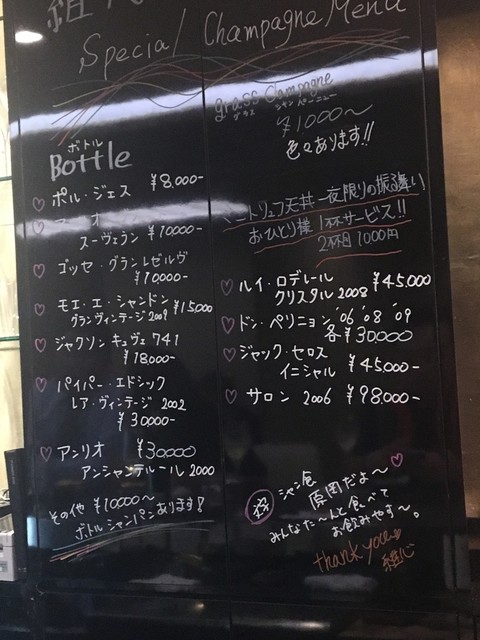 Special Champagne Menu
grass Champagne
グラス シャンパーニュー
¥1000〜
色々あります!!
ボトル
Bottle
ポル・ジェス ¥8,000-
スーヴェラン ¥10000-
ゴッセ・グランレゼルヴ
¥10000-
モエ・エ・シャンドン ¥15,000
グランヴィンテージ2009
ジャクソン キュヴェ 741
¥18,000-
パイパー・エドシック
レア・ヴィンテージ 2002
¥30000-
アンリオ ¥30,000
アンシャンテルール 2000
その他 ¥10000〜
ボトルシャンパンあります!
ミニトリュフ天丼 一夜限りの振る舞い
おひとり様 1杯サービス!!
2杯目 1000円
ルイ・ロデレール ¥45,000
クリスタル 2008
ドン・ペリニョン '06 '08 '09
各¥30,000
ジャック・セロス
イニシャル ¥45,000-
サロン 2006 ¥98,000-
シャン食
原岡だよ〜
みんなた〜んと食べて
お飲みやす〜。
thank you